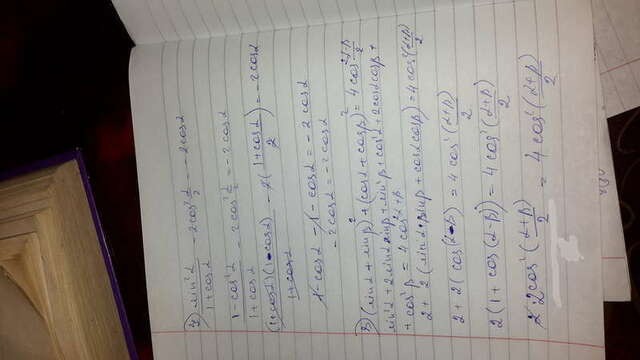 4) sin²α / 1+cosα - 2cos² α/2 = -2cosα
1-cos²α / 1+cosα - 2cos² α/2 = -2cosα
(1+cosα)(1-cosα) / 1+cosα - 2(1+cosα / 2) = -2cosα
1-cosα-1-cosα = -2cosα
-2cosα = -2cosα
3) (sinα+sinβ)² + (cosα+cosβ)² = 4cos² α-β / 2
sin²α+2sinαsinβ+sin²β+cos²α+2cosαcosβ+
+cos²β = 4cos² α-β / 2
2+2(sinα·sinβ+cosαcosβ) = 4cos² (α+β) / 2
2+2(cos(α-β) = 4cos² (α+β) / 2
2(1+cos(α-β)) = 4cos² (α+β) / 2
2·2cos² (α+β) / 2 = 4cos² (α+β) / 2